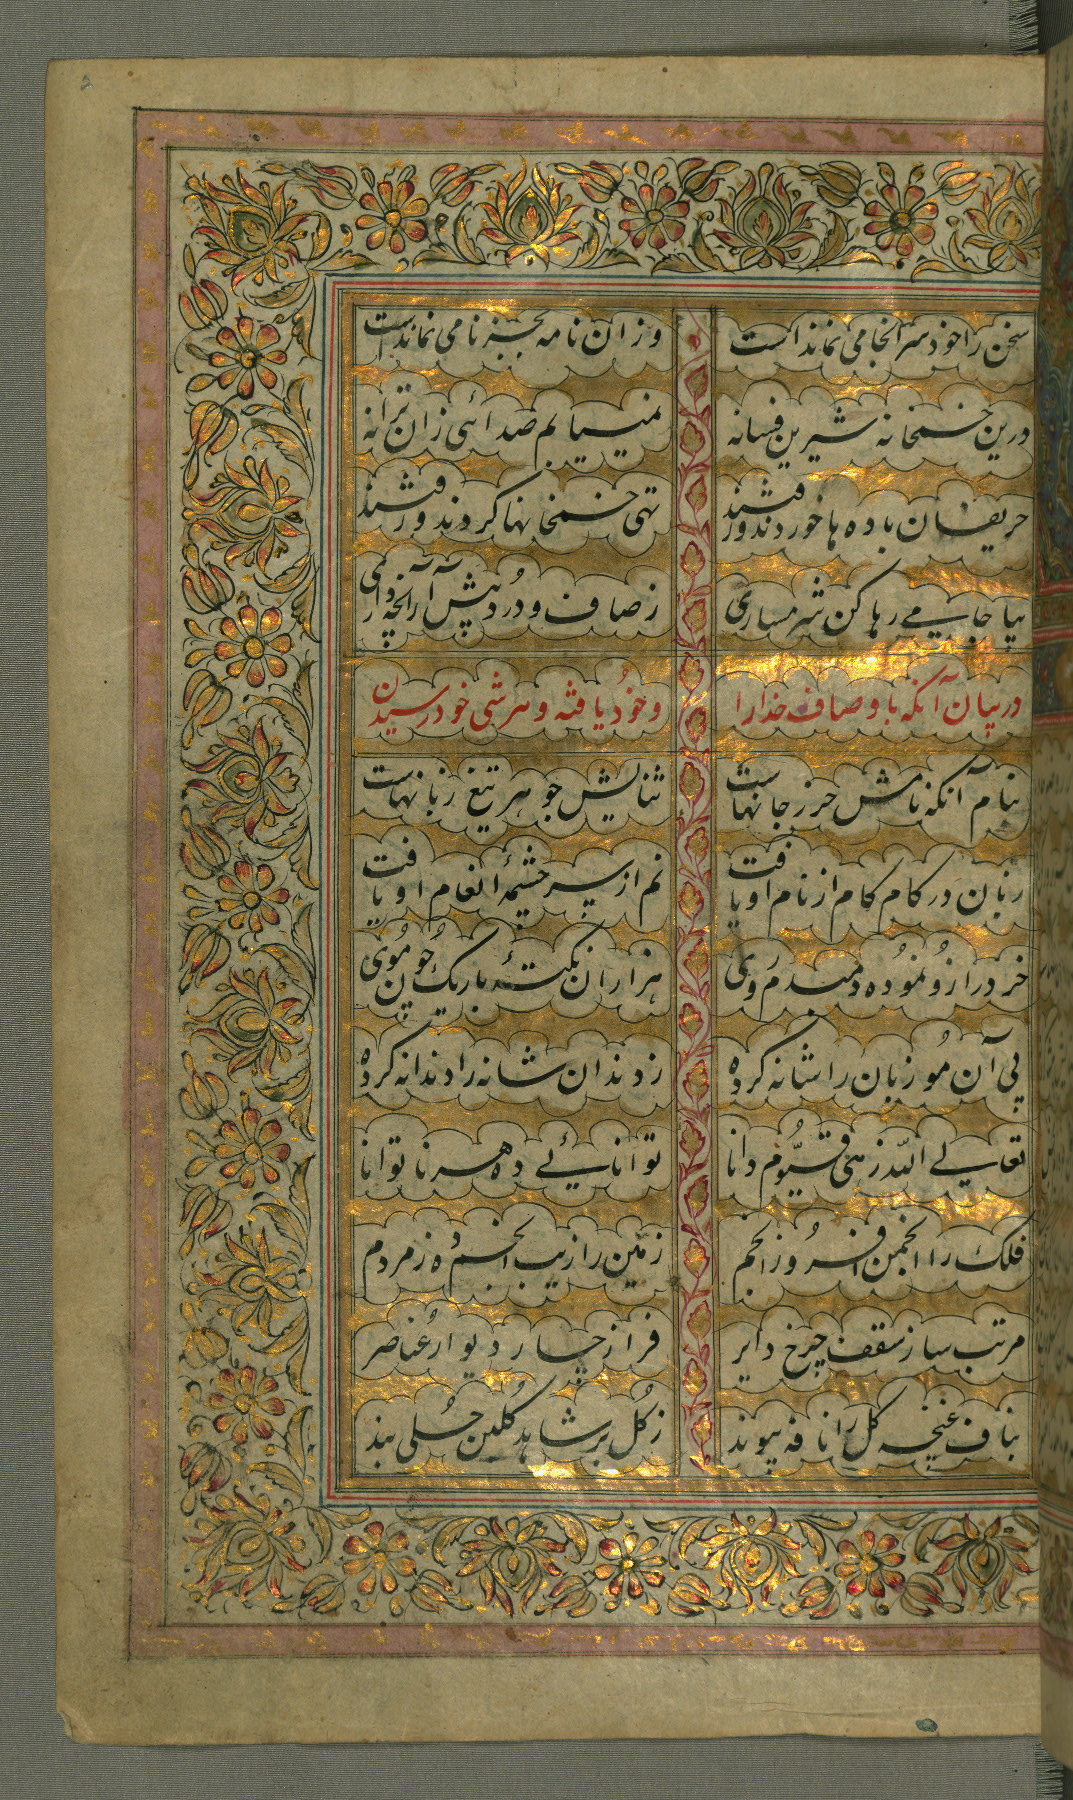 سخن را خود سرانجامی نماندست وزان نامه بجز نامی نماندست
درین خمخانه شیرین فسانه نمییابم صدائی زان ترانه
حریفان باده ها خوردند و رفتند تهی خمخانها کردند و رفتند
بیا جامی رها کن شرمساری ز صاف و درد پیش آر آنچه داری
در بیان آنکه با وصاف خدا را و خود یافته و هر شی خود رسیدن
بنام آنکه نامش حرز جانهاست ثنایش جوهر تیغ زبانهاست
زبان در کام کام از نام او یافت نم از سرچشمهٔ انعام او یافت
خرد را زو نموده دمبدم روی هزاران نکتهٔ باریک چون موی
پی آن مو زبان را شانه کرده ز دندان شانه را دندانه کرده
تعالی الله زهی قیّوم دانا توانائی ده هر ناتوانا
فلک را انجمن افروز انجم زمین را زیب انجم ده ز مردم
مرتب ساز سقف چرخ دایر فراز چار دیوار عناصر
بناف غنچه گل را نافه پیوند ز گل بر شاهد گلبن حلی بند